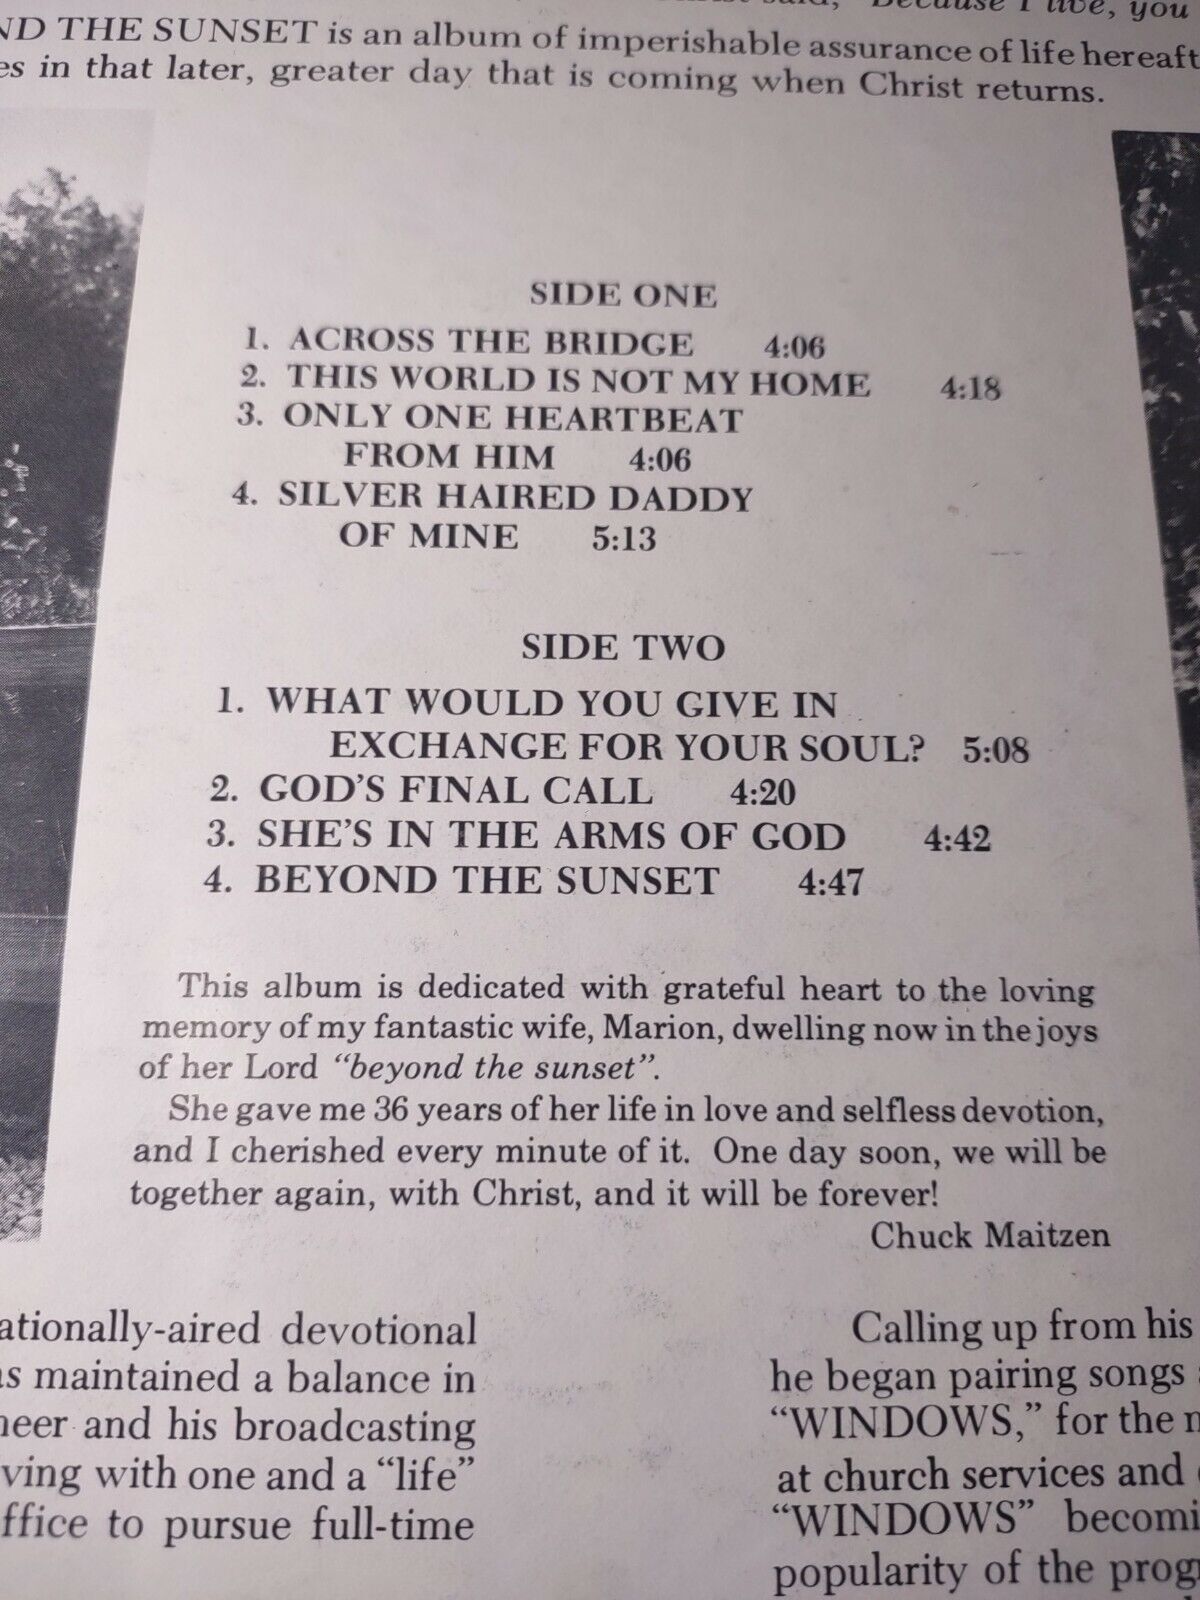 said, "Because I live, you
THE SUNSET is an album of imperishable assurance of life
in that later, greater day that is coming when Christ returns.
SIDE ONE
1. ACROSS THE BRIDGE 4:06
2. THIS WORLD IS NOT MY HOME 4:18
3. ONLY ONE HEARTBEAT
FROM HIM 4:06
4. SILVER HAIRED DADDY
OF MINE 5:13
SIDE TWO
1. WHAT WOULD YOU GIVE IN
EXCHANGE FOR YOUR SOUL? 5:08
2. GOD'S FINAL CALL 4:20
3. SHE'S IN THE ARMS OF GOD 4:42
4. BEYOND THE SUNSET 4:47
This album is dedicated with grateful heart to the loving
memory of my fantastic wife, Marion, dwelling now in the joys
of her Lord "beyond the sunset".
She gave me 36 years of her life in love and selfless devotion,
and I cherished every minute of it. One day soon, we will be
together again, with Christ, and it will be forever!
Chuck Maitzen
devotional
maintained a balance in
and his broadcasting
with one and a "life"
to pursue full-time
Calling up from his
he began pairing songs
"WINDOWS," for the
at church services and
"WINDOWS"
popularity of the